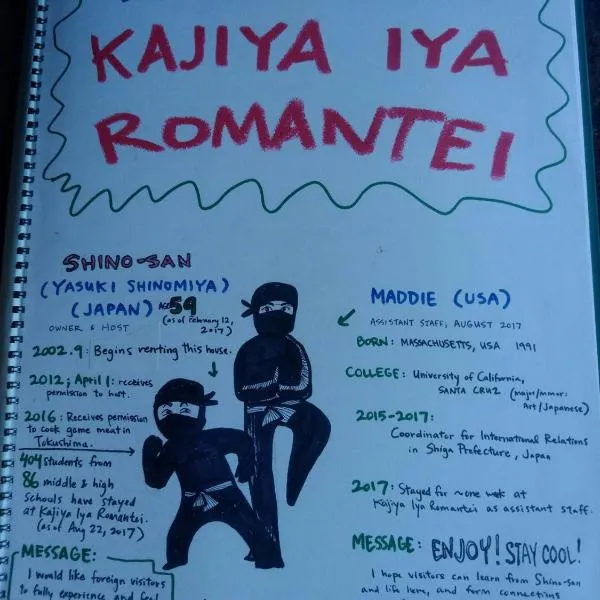 KAJIYA IYA
ROMANTEI
SHINO-SAN
(YASUKI SHINOMIYA)
(JAPAN) AGE 59
(as of February 12,
2017)
OWNER & HOST
2002.9: Begins renting this house.
2012; April 1: receives
permission to host.
2016: Receives permission
to cook game meat in
Tokushima.
404 students from
86 middle & high
schools have stayed
at Kajiya Iya Romantei.
(as of Aug 22, 2017)
MESSAGE:
I would like foreign visitors
to fully experience and feel
MADDIE (USA)
ASSISTANT STAFF, AUGUST 2017
BORN: MASSACHUSETTS, USA 1991
COLLEGE: University of California,
SANTA CRUZ (major/minor:
Art/Japanese)
2015-2017:
Coordinator for International Relations
in Shiga Prefecture, Japan
2017: Stayed for ~one week at
Kajiya Iya Romantei as assistant staff.
MESSAGE: ENJOY! STAY COOL!
I hope visitors can learn from Shino-san
and life here, and form connections